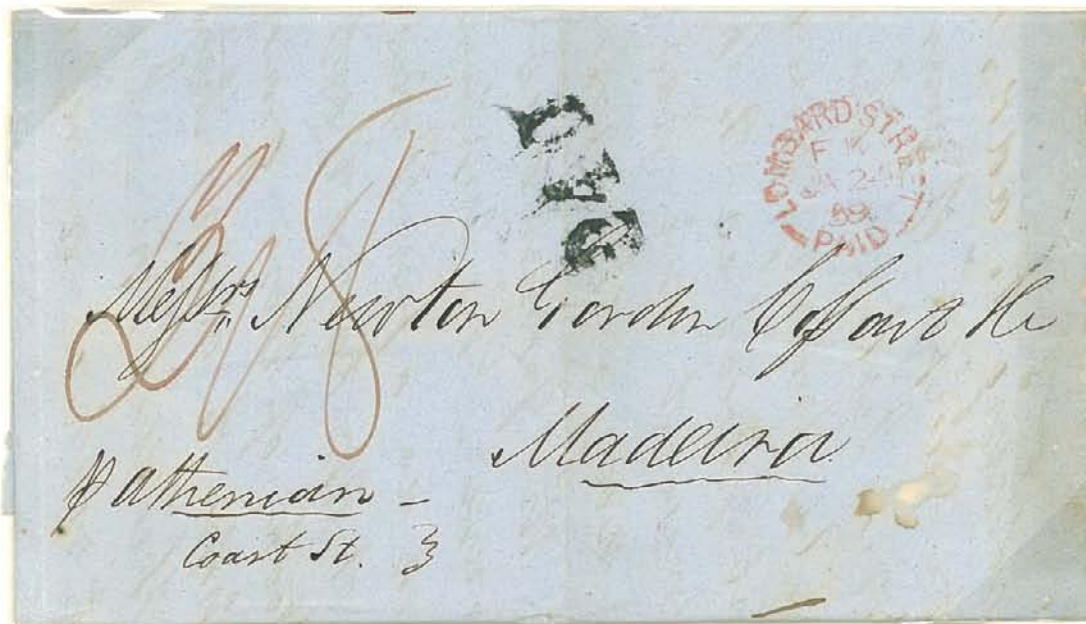 LOMBARD STREET
F K
JA 24
59
PAID
Messrs Newton Gordon Cossart &c
Madeira
p Athenian -
Coast St. 3